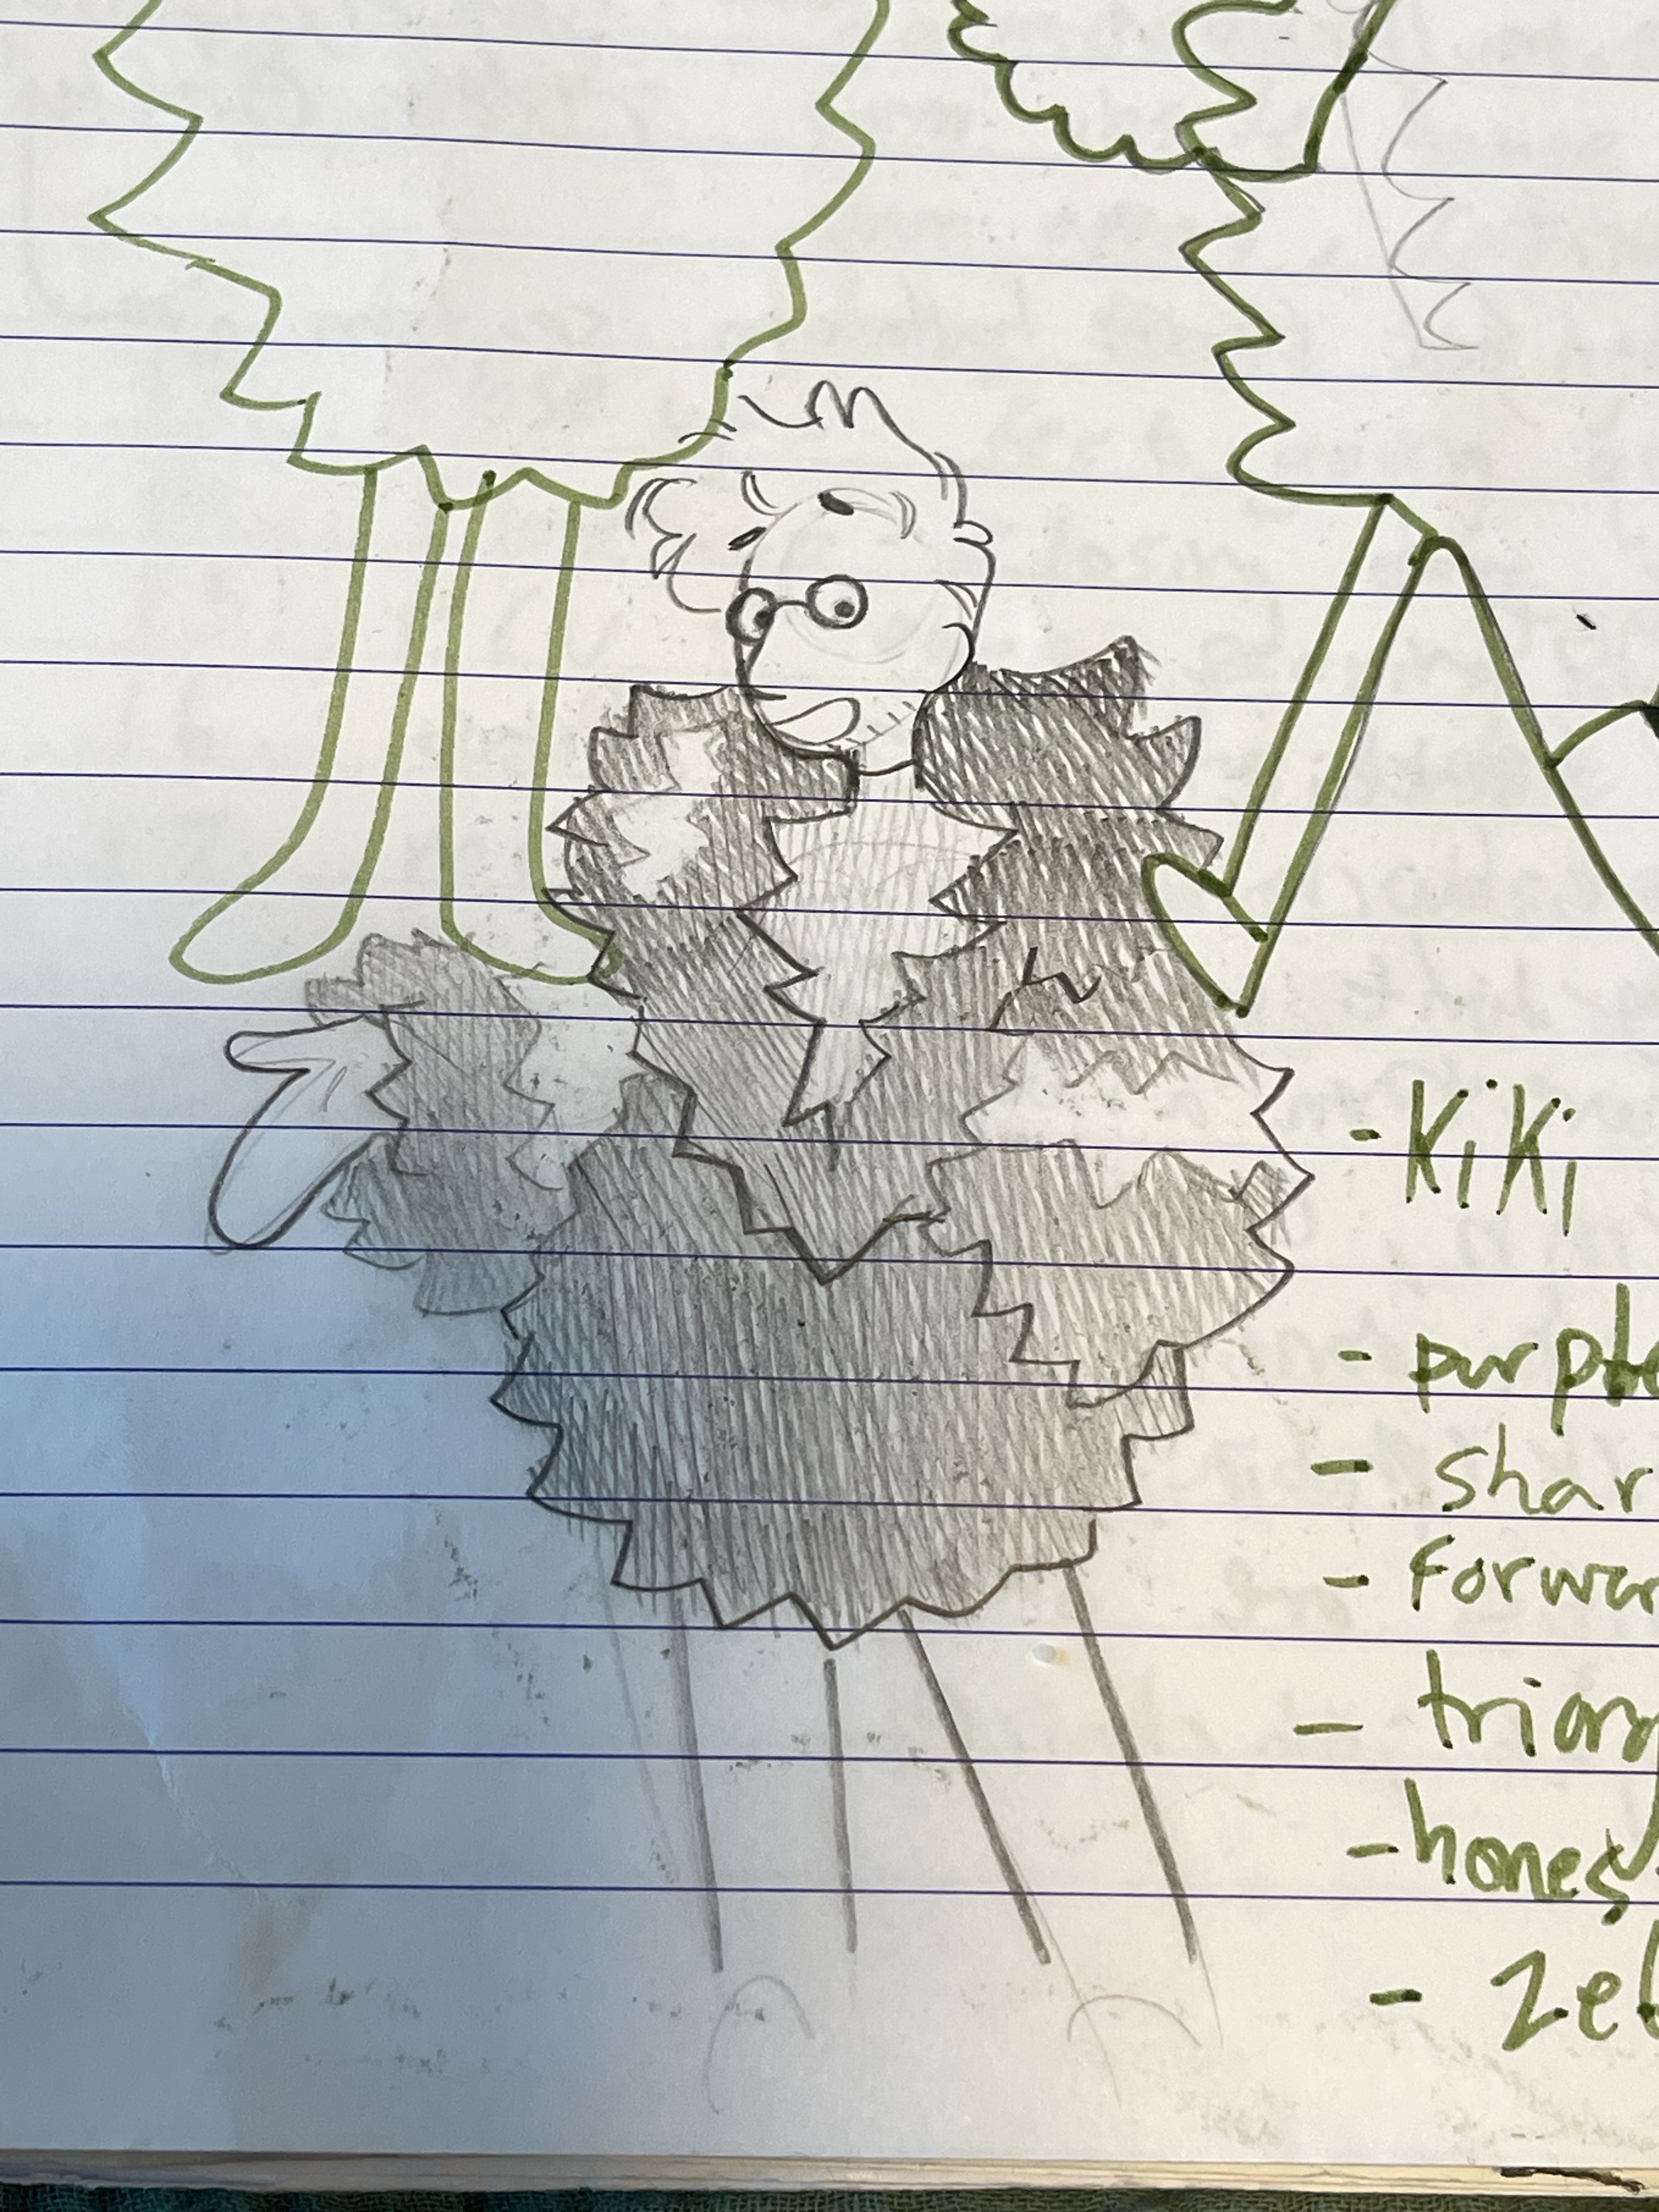 - KiKi
- purple
- shar
- forwar
- triang
- hones
- zeb